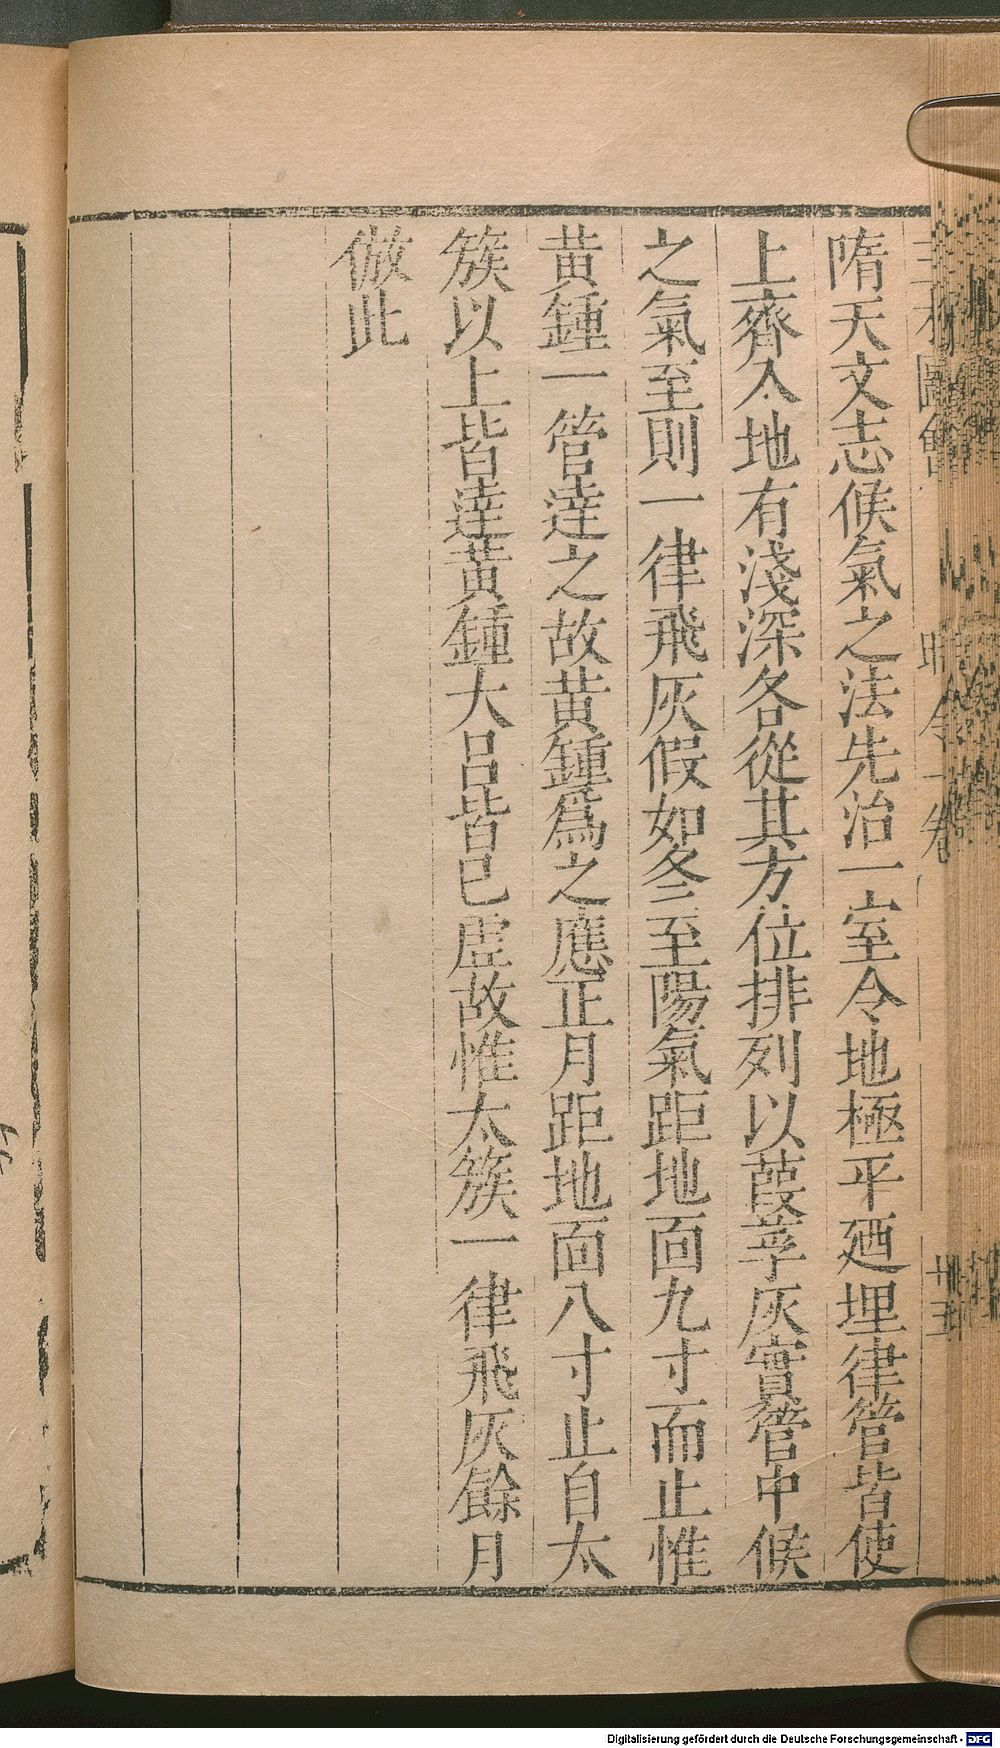 隋天文志候氣之法先治一室令地極平廼埋律管皆使
上齊入地有淺深各從其方位排列以葭莩灰實管中候
之氣至則一律飛灰假如冬至陽氣距地面九寸而止惟
黃鍾一管達之故黃鍾爲之應正月距地面八寸止自太
簇以上皆達黃鍾大呂皆已虛故惟太簇一律飛灰餘月
倣此
圖會 時令一卷 十五
Digitalisierung gefördert durch die Deutsche Forschungsgemeinschaft - DFG